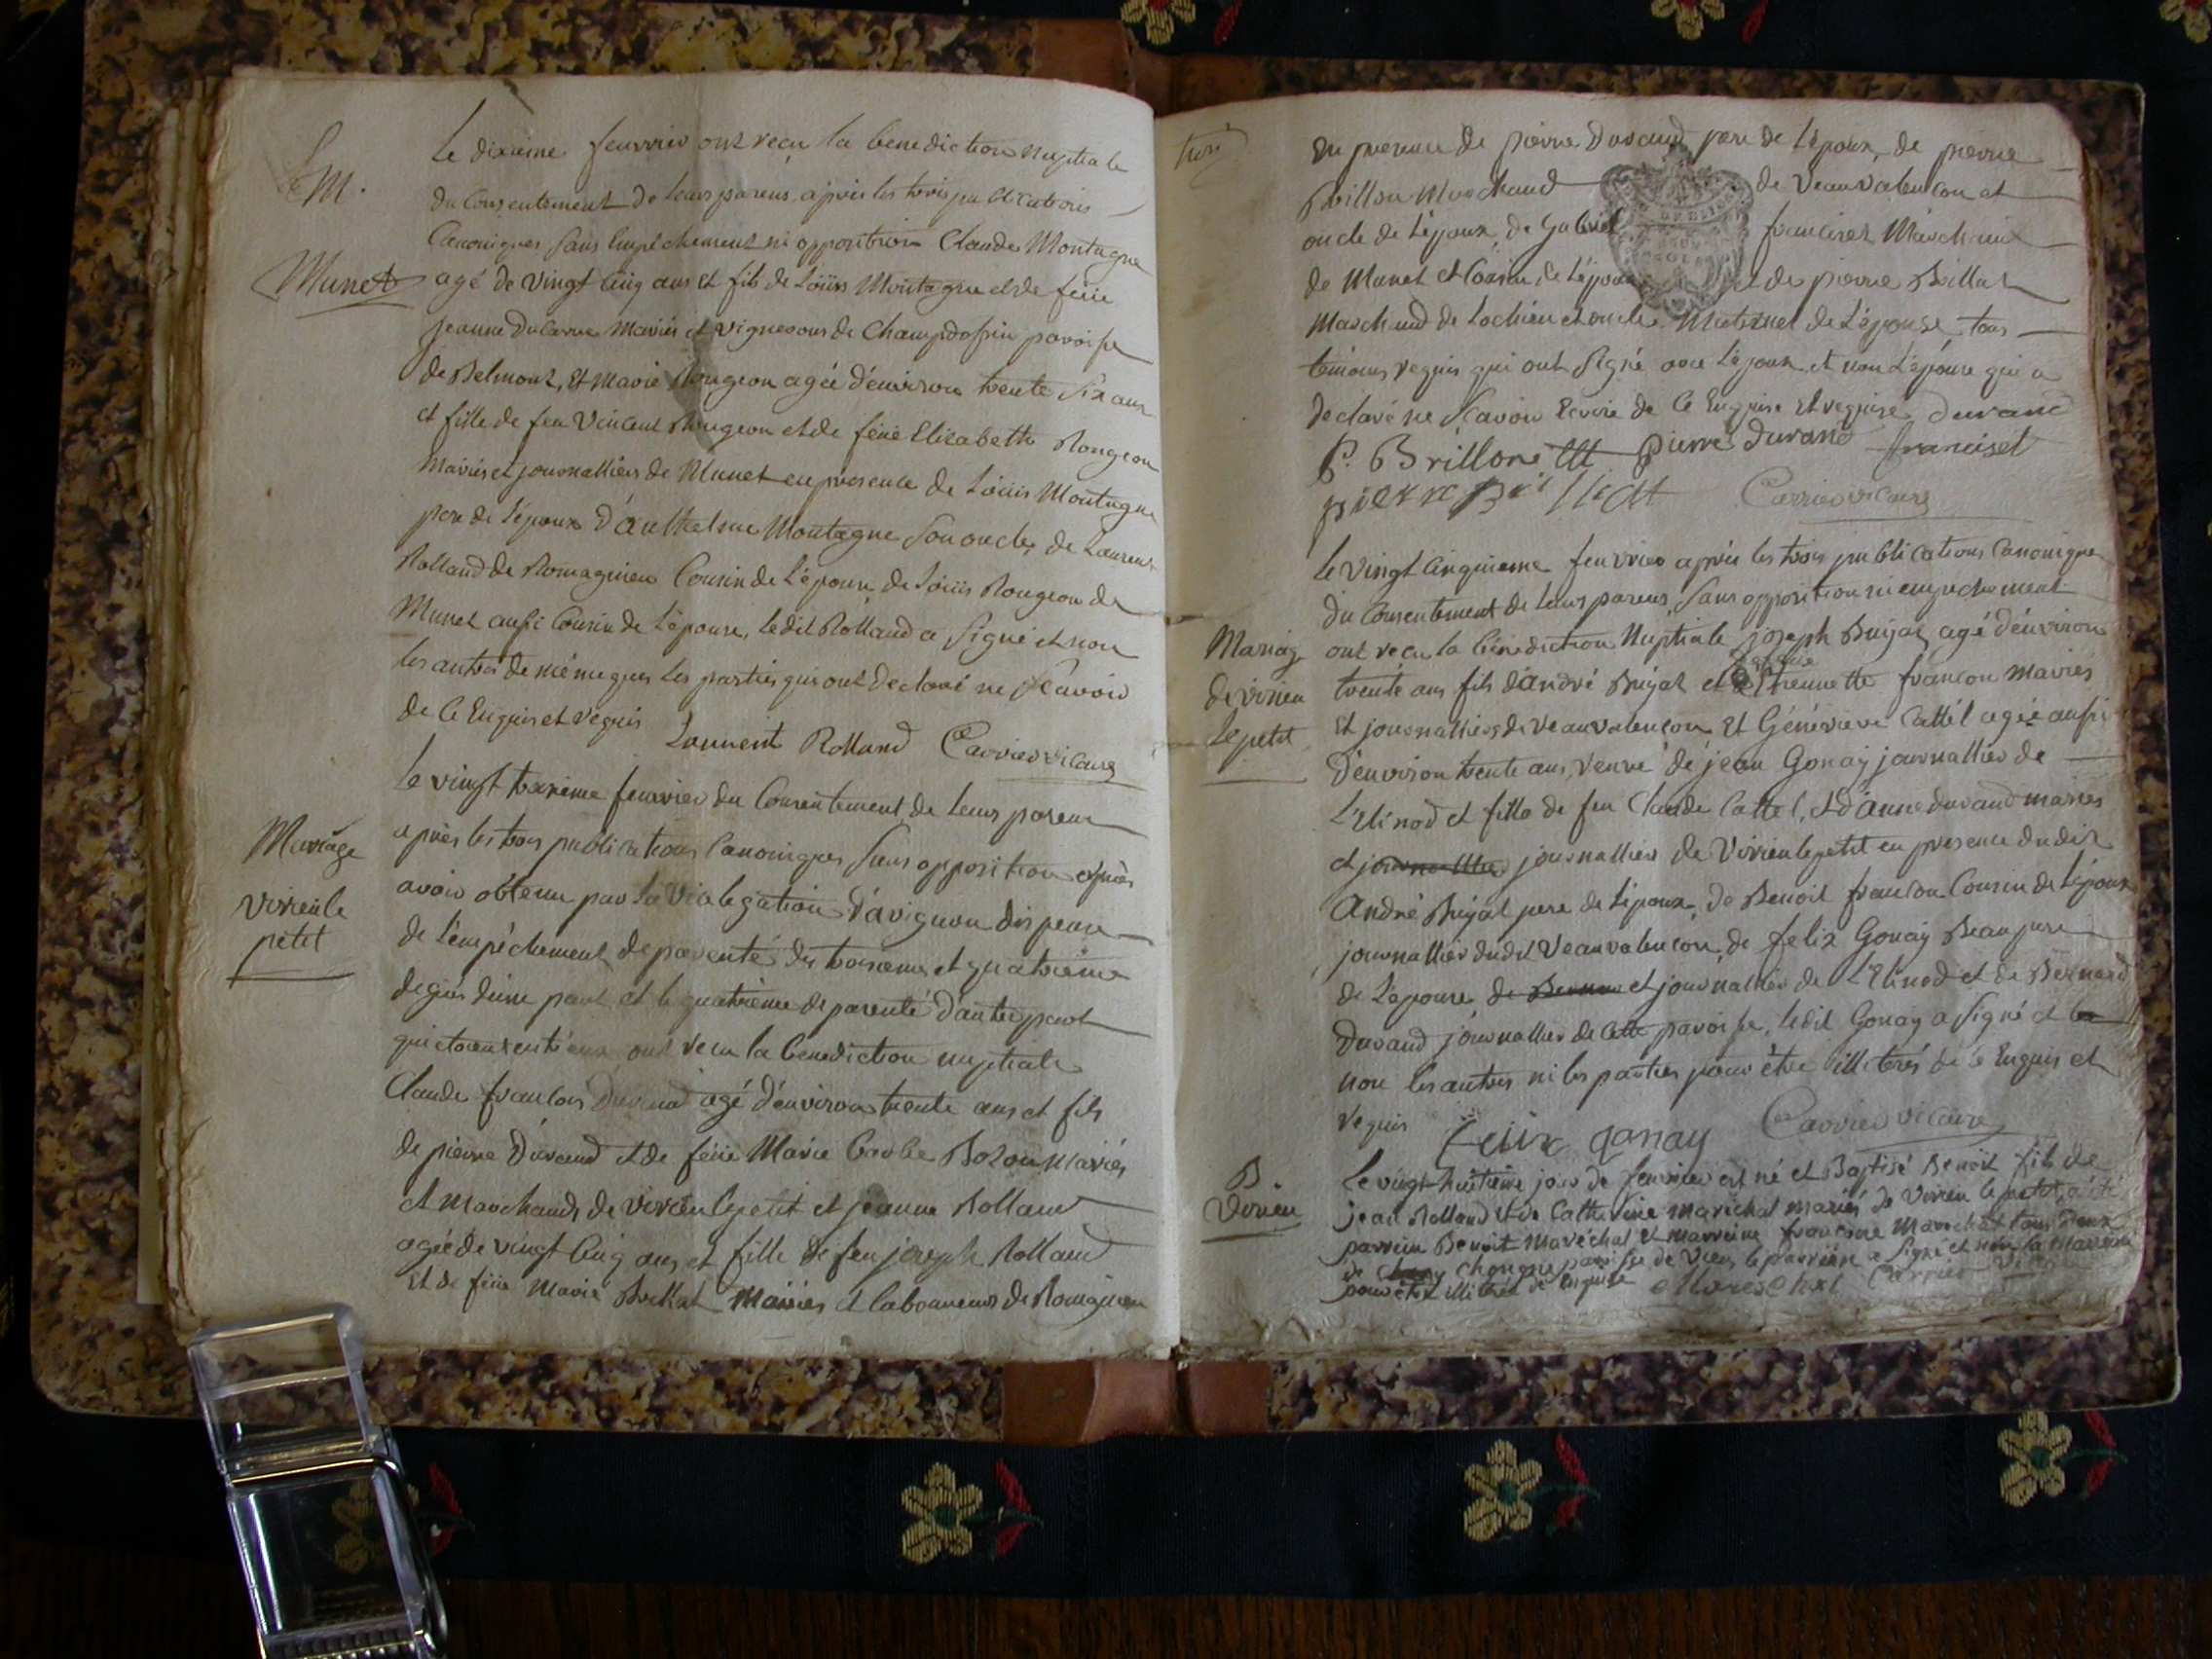 Le dixieme feuvrier ont reçu la benediction nuptiale
M.
du consentement de leurs parens, après les trois publications
Canoniques, sans empêchement ni opposition Claude Montagne
Munet
agé de vingt cinq ans et fils de Loüis Montagne et de feüe
jeanne mariés et vignerons de paroisse
de Belmont, et Marie Rougeon agée d'environ trente six ans
et fille de feu Vincent Rougeon et de feüe Elisabeth Rongeon
mariés et journalliers de Munet en presence de Loüis Montagne
pere de l'époux d'anthelme Montagne son oncle, de Laurent
Rolland de Romagnieu Cousin de l'épouse, de Loüis Rougeon de
Munet aussi Cousin de l'épouse, ledit Rolland a signé et non
les autres de même que les parties qui ont declaré ne sçavoir
de ce enquis et requis Laurent Rolland Carrier vicaire
Le vingt troisieme feuvrier du Consentement de leurs parens
Mariage
après les trois publications Canoniques sans opposition après
virieu le
avoir obtenu par la vice legation d'avignon dispense
petit
de l'empêchement de parenté du troisieme et quatrième
degrés d'une part et le quatrième de parenté d'autre part
qui etoient entr'eux ont recu la benediction nuptiale
Claude francois Durand agé d'environ trente ans et fils
de pierre Durand et de feüe Marie Bozon mariés
et marchands de virieu le petit et jeanne Rolland
agée de vingt cinq ans et fille de feu joseph Rolland
et de feüe Marie Billiat mariés et laboureurs de Romagnieu
En presence de pierre Durand pere de l'époux, de pierre
Brillon Marchand de Veauvalencon et
oncle de l'époux, de Gabriel franciset Marchand
de Munet et Cousin de l'époux et de pierre Billiat
Marchand de Lochieu et oncle Maternel de l'épouse, tous
témoins requis qui ont signé avec l'époux et non l'épouse qui a
declaré ne sçavoir Ecrire de ce Enquise et requise Durand
P. Brillon pierre durand franciset
pierre Carrier vicaire
Le vingt cinquieme feuvrier après les trois publications Canoniques
du Consentement de leurs parens, sans opposition ni empechement
Mariage
ont recu la bénédiction Nuptiale joseph Bujat agé d'environ
de virieu
trente ans fils d'andré Bujat et d'Etiennette francon mariés
Le petit
et journalliers de veauvalencon et Généviève Cattél agée aussi
d'environ trente ans, veuve de jean Gonay journallier de
L'Elinod et fille de feu Claude Cattel, et d'anne durand mariés
et journalliers de Virieu le petit en presence dudit
André Bujat pere de l'époux, de Benoit francon Cousin de l'époux
journallier dudit Veauvalencon, de felix Gonay Beau pere
de l'épouse, et journallier de L'Elinod et de Bernard
Durand journallier de cette paroisse, ledit Gonay a signé et
non les autres ni les parties pour être illiterés de ce Enquis et
requis felix gonay Carrier vicaire
B.
Virieu
Le vingt huitieme jour de feuvrier est né et Baptisé Benoit fils de
jean Rolland et de Catherine marechal mariés de virieu le petit, a été
parrein Benoit Maréchal et marreine francoise Marechal tous deux
de Chongne paroisse de Vieu, le parrein a signé et non la marreine
pour être illiterée de enquise Mareschal Carrier